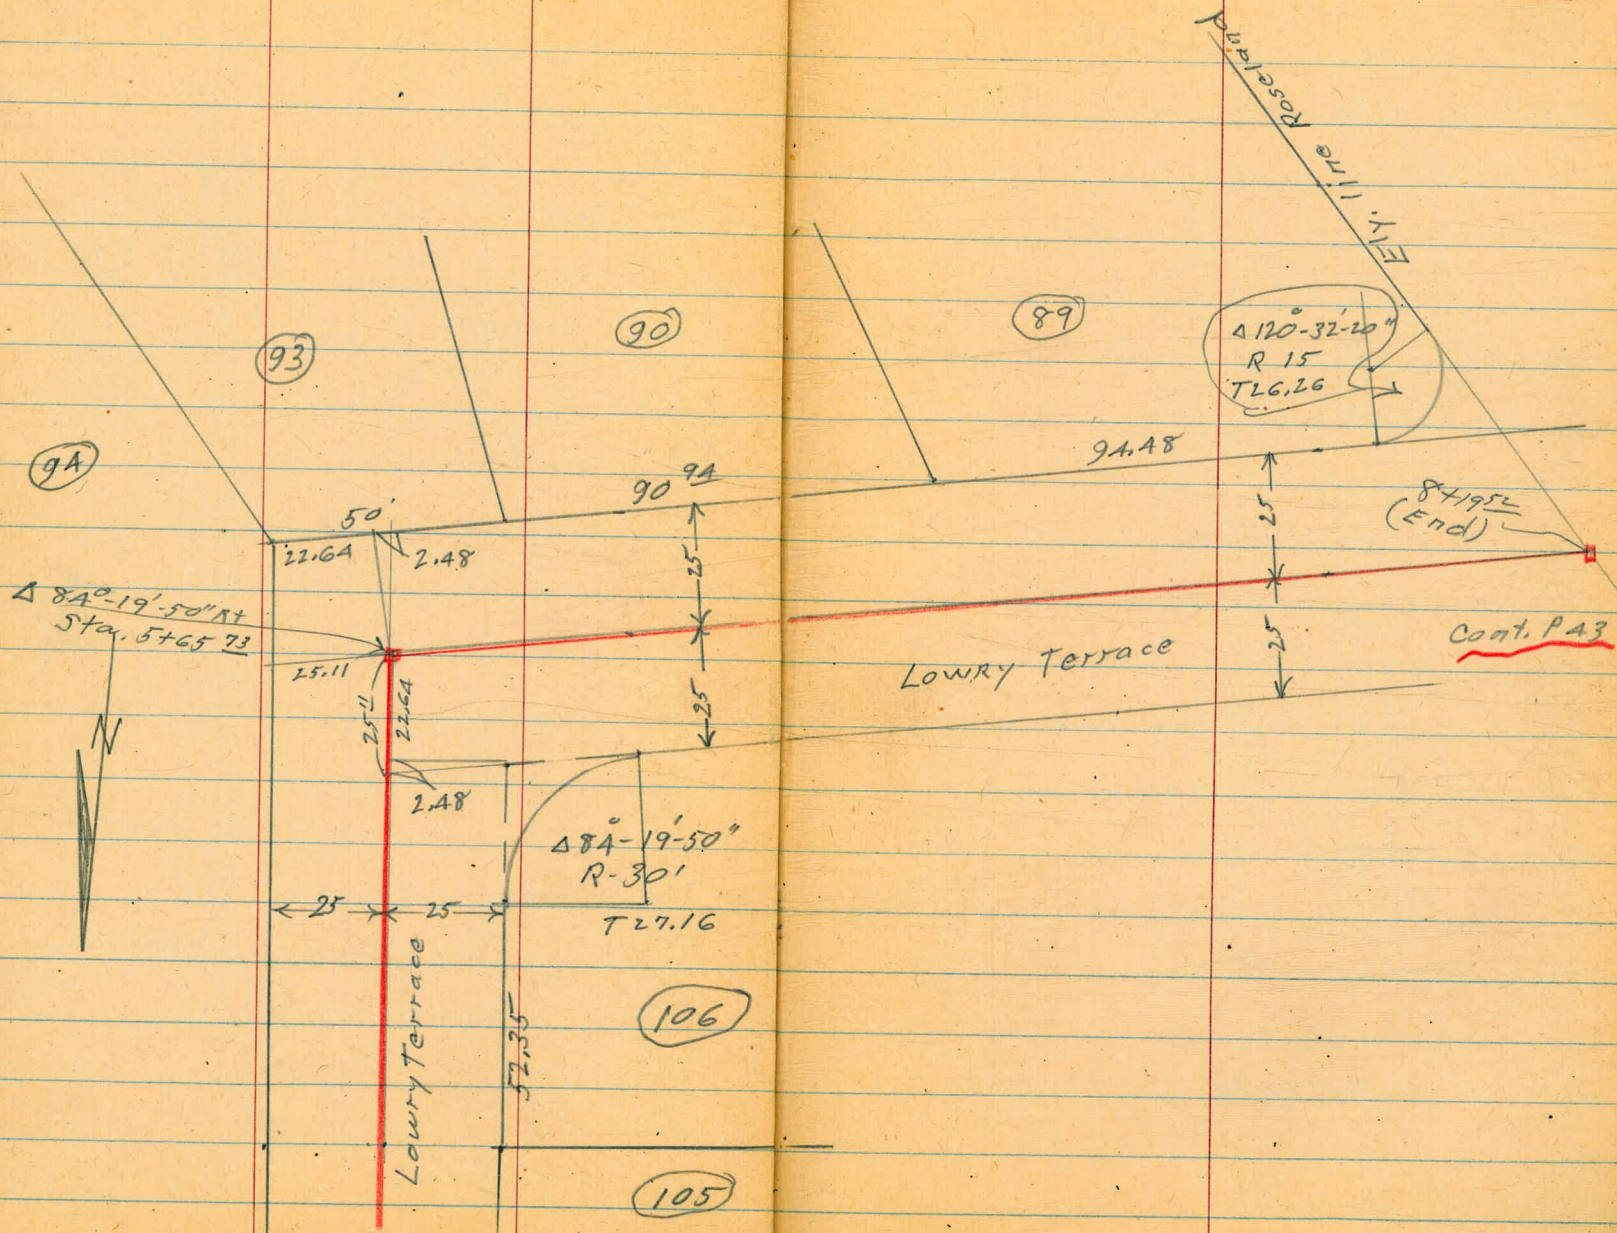 Ely. line Roseland
93
90
89
Δ 120°-32'-20"
R 15
T 26.26
94
50'
90 94
94.48
22.64
2.48
25
25
8+19 52
(End)
Δ 84°-19'-50" Rt
Sta. 5+65 73
25.11
25 11
22.64
25
25
Lowry Terrace
Cont. P 43
2.48
Δ 84°-19'-50"
R-30'
T 27.16
25
25
Lowry Terrace
52.35
106
105